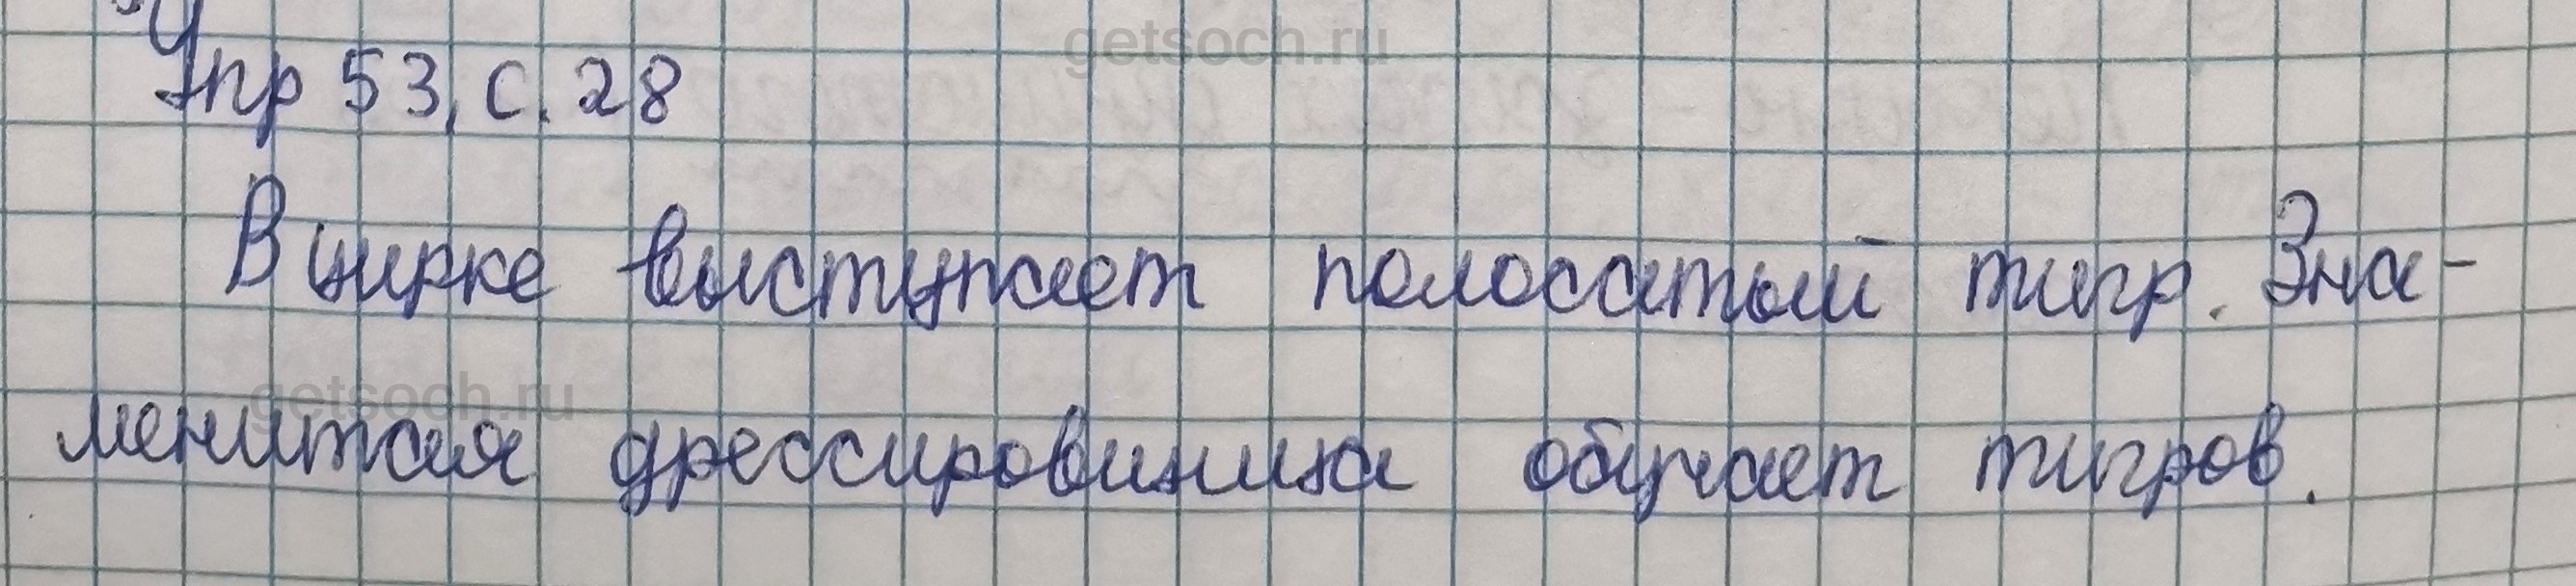 getsoch.ru
Упр 53, с. 28
В цирке выступает полосатый тигр. Зна-
getsoch.ru
менитая дрессировщица обучает тигров.